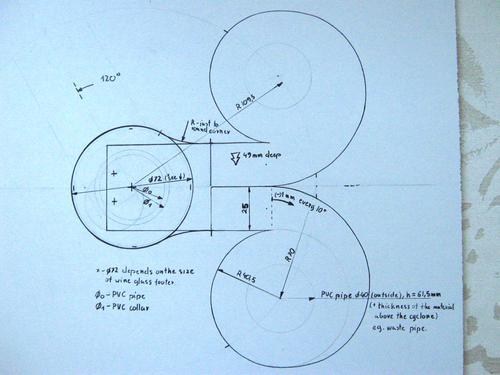 120°
R109,5
R-just to
round corner
49mm deep
ø72 (See *)
Ø0
Ø1
25
(-)1mm every 10°
R70
R40,5
PVC pipe d40 (outside), h=61,5mm
(+ thickness of the material
above the cyclone)
eg. waste pipe.
*-Ø72 depends on the size
of wine glass footer.
Ø0-PVC pipe
Ø1-PVC collar